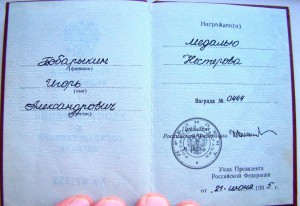 Бобарыкин
(фамилия)
Игорь
(имя)
Александрович
(отчество)
Награжден(а)
медалью
Нестерова
Награда № 0444
Президент
Российской Федерации
Указ Президента
Российской Федерации
от „21“ июня 1995 г.